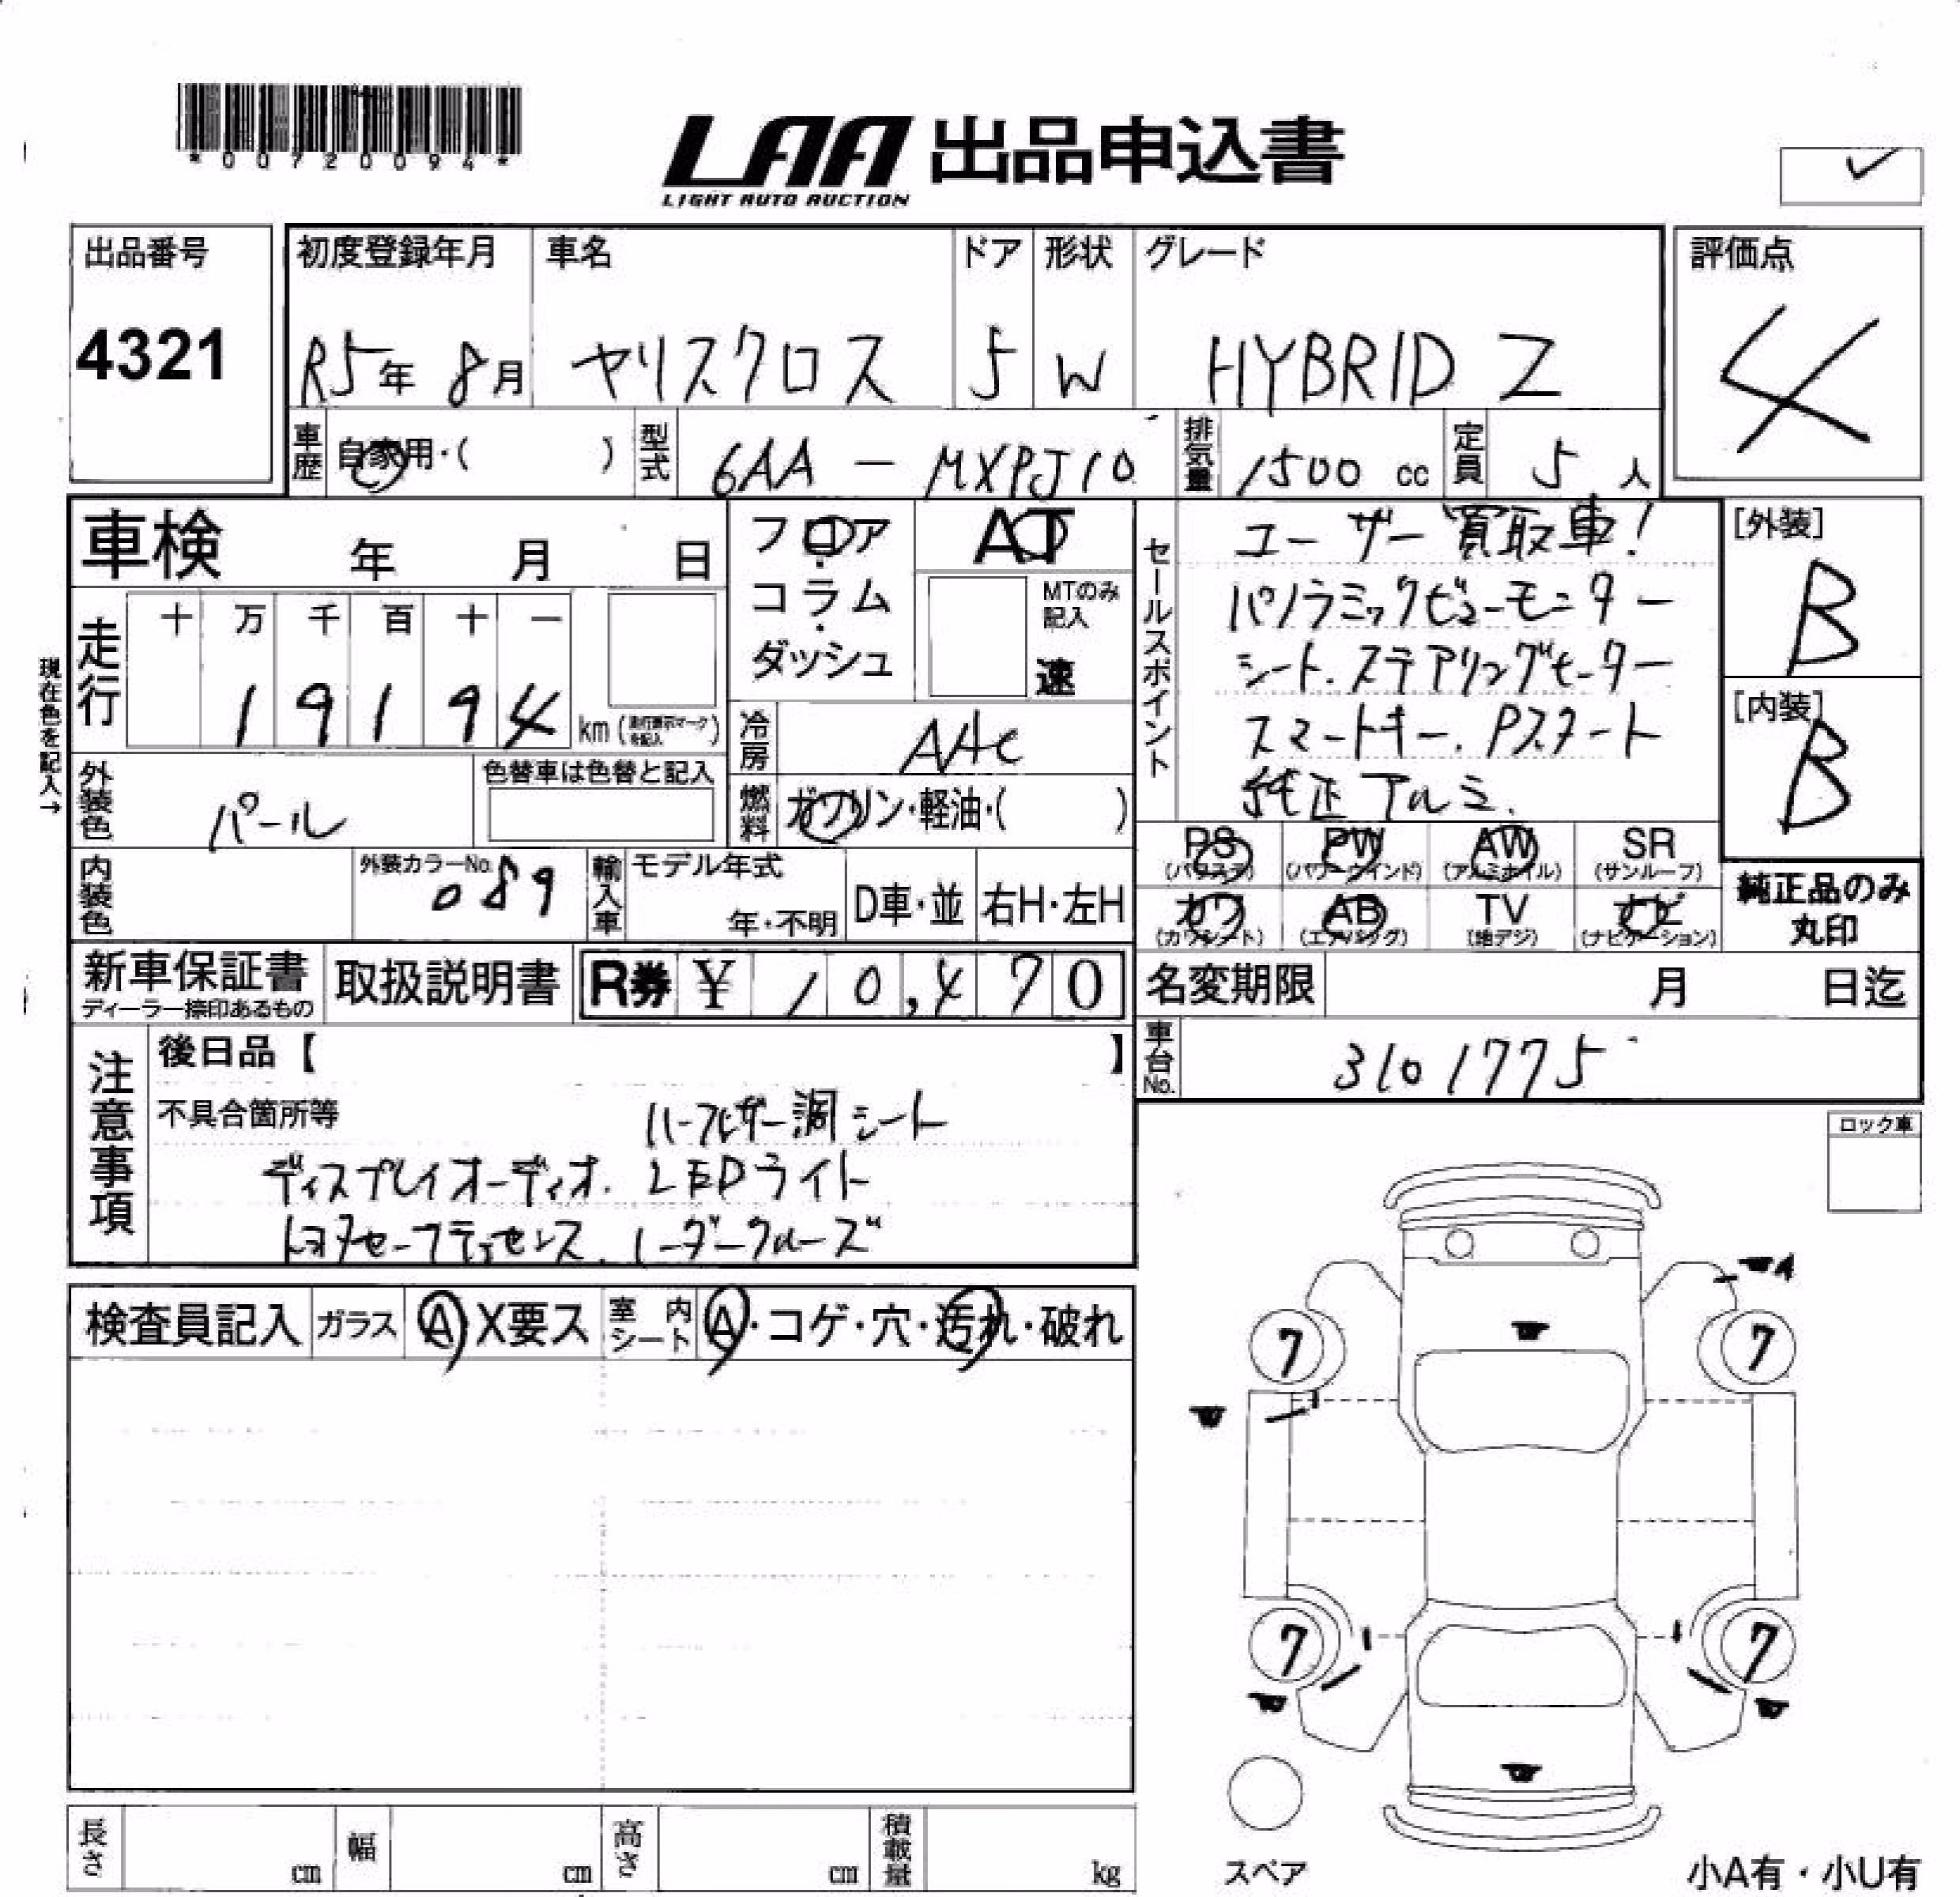 *00720094*
LAA 出品申込書
LIGHT AUTO AUCTION
出品番号
4321
初度登録年月
R5年 8月
車名
ヤリスクロス
ドア
5
形状
W
グレード
HYBRID Z
評価点
4
車歴
自家用・( )
型式
6AA － MXPJ10
排気量
1500 cc
定員
5 人
車検 年 月 日
フロア・コラム・ダッシュ
AT
MTのみ記入
速
セールスポイント
ユーザー買取車!
パノラミックビューモニター
シート.ステアリングヒーター
スマートキー. Pスタート
純正アルミ.
[外装]
B
[内装]
B
現在色を記入→
走行
十 万 千 百 十 一
1 9 1 9 4
km (走行表示マークを記入)
冷房
AAC
外装色
パール
色替車は色替と記入
燃料
ガソリン・軽油・( )
PS (パワステ)
PW (パワーウインド)
AW (アルミホイル)
SR (サンルーフ)
カワ (カワシート)
AB (エアバッグ)
TV (地デジ)
ナビ (ナビゲーション)
純正品のみ
丸印
内装色
外装カラーNo.
089
輸入車
モデル年式
年・不明
D車・並
右H・左H
新車保証書
ディーラー捺印あるもの
取扱説明書
R券 ¥ 10,470
名変期限 月 日迄
車台No.
3101775
注意事項
後日品【 】
不具合箇所等
ハーフレザー調シート
ディスプレイオーディオ. LEDライト
トヨタセーフティセンス. レーダークルーズ
ロック車
検査員記入
ガラス
A X要ス
室内シート
A・コゲ・穴・汚れ・破れ
7
7
7
7
長さ cm
幅 cm
高さ cm
積載量 kg
スペア
小A有・小U有